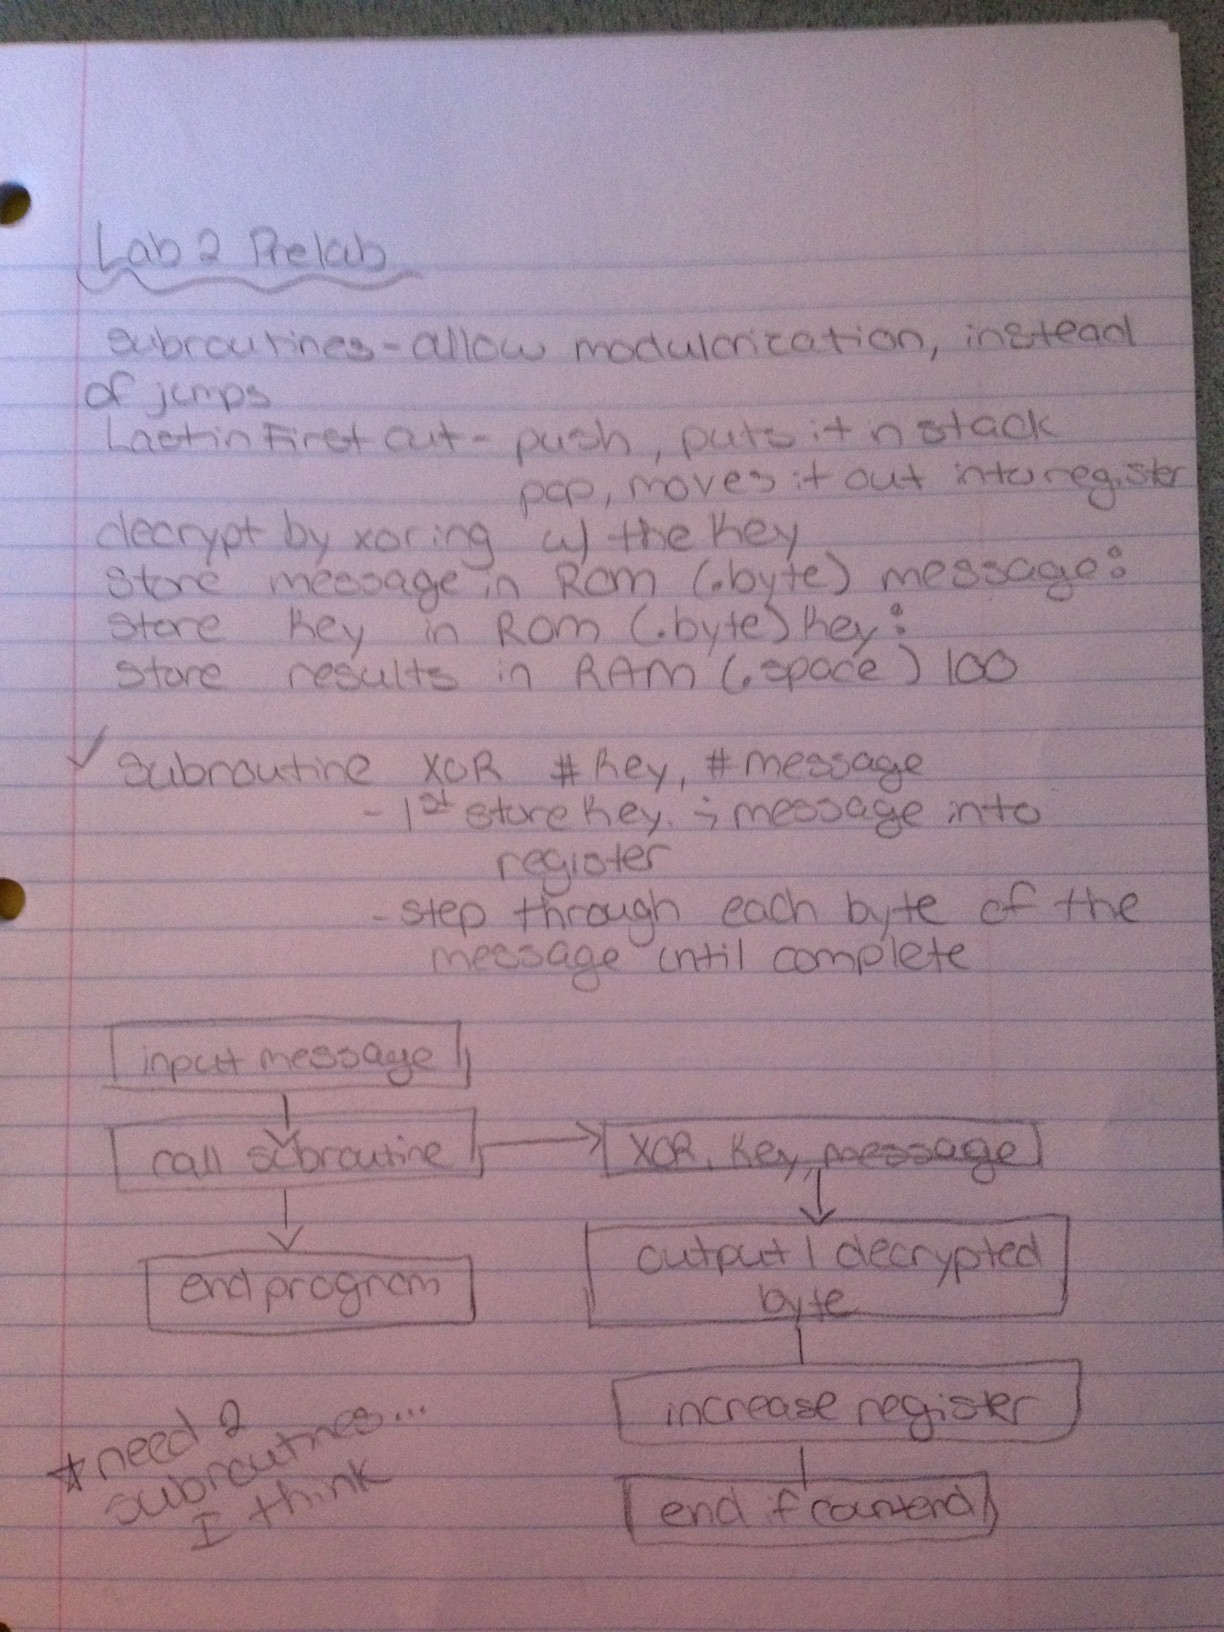 Lab 2 Prelab
subroutines - allow modularization, instead
of jumps
Last in First out - push, puts it n stack
pop, moves it out into register
decrypt by xoring w/ the key
store message in ROM (.byte) message:
store key in ROM (.byte) key:
store results in RAM (.space) 100
✓ subroutine XOR #key, #message
- 1st store key ; message into
register
- step through each byte of the
message until complete
input message
call subroutine
XOR, key, message
output 1 decrypted
byte
end program
increase register
* need 2
subroutines...
I think
end if